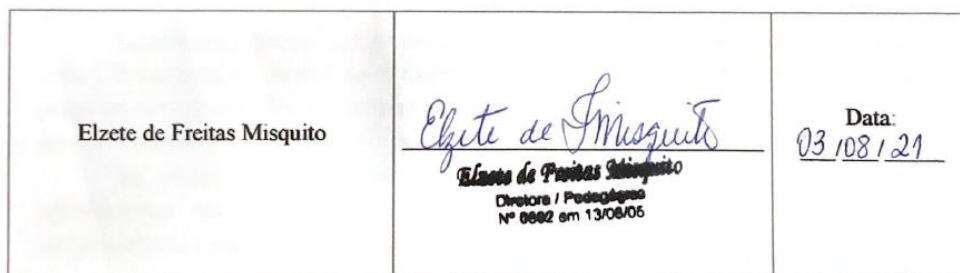 Elzete de Freitas Misquito
Elzete de F Misquito
Elzete de Freitas Misquito
Diretora / Pedagógica
Nº 6692 em 13/06/05
Data:
03 / 08 / 21